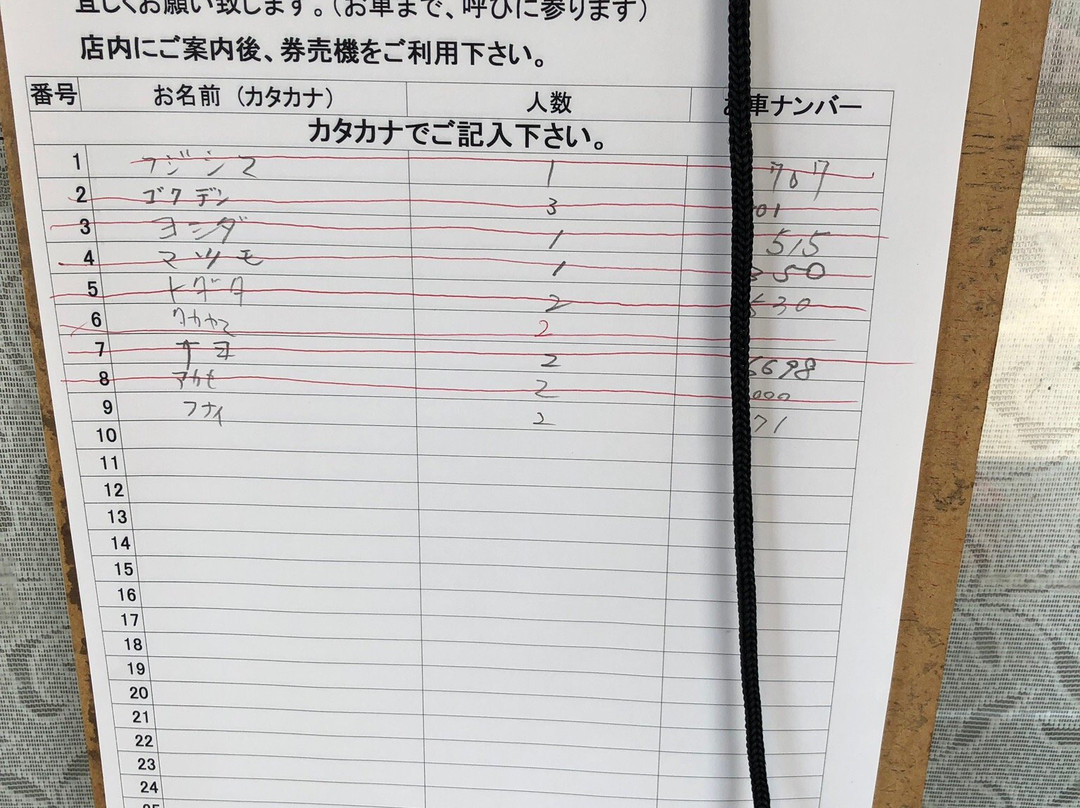 宜しくお願い致します。(お車まで、呼びに参ります)
店内にご案内後、券売機をご利用下さい。
番号 お名前 (カタカナ) 人数 お車ナンバー
カタカナでご記入下さい。
1 フジシマ 1 707
2 ゴクデン 3 01
3 ヨシダ 1 515
4 マツモ 1 50
5 トダタ 2 30
6 タカヤマ 2
7 2 6698
8 アカセ 2 000
9 フナイ 2 71
10
11
12
13
14
15
16
17
18
19
20
21
22
23
24